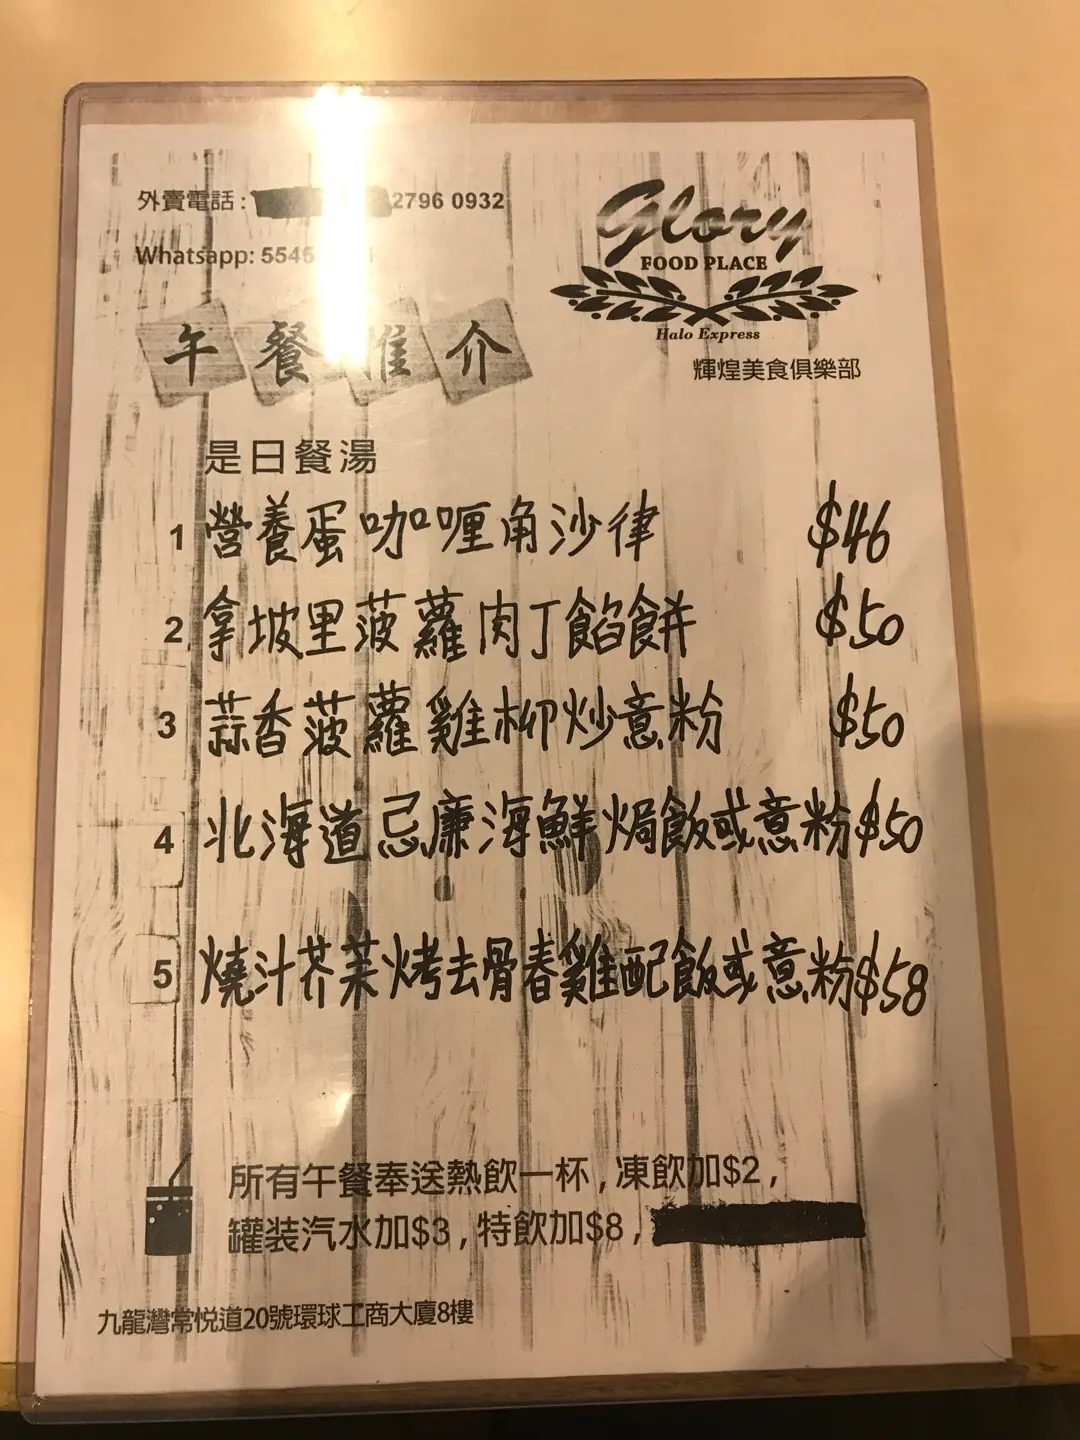 外賣電話: 2796 0932
Whatsapp:
Glory
FOOD PLACE
Halo Express
輝煌美食俱樂部
午餐推介
是日餐湯
1 營養蛋咖喱角沙律 $46
2 拿坡里菠蘿肉丁餡餅 $50
3 蒜香菠蘿雞柳炒意粉 $50
4 北海道忌廉海鮮焗飯或意粉 $50
5 燒汁芥茉烤去骨春雞配飯或意粉 $58
所有午餐奉送熱飲一杯, 凍飲加$2,
罐装汽水加$3, 特飲加$8,
九龍灣常悦道20號環球工商大廈8樓